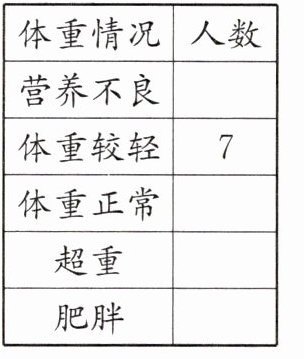 体重情况 人数
营养不良
体重较轻 7
体重正常
超重
肥胖